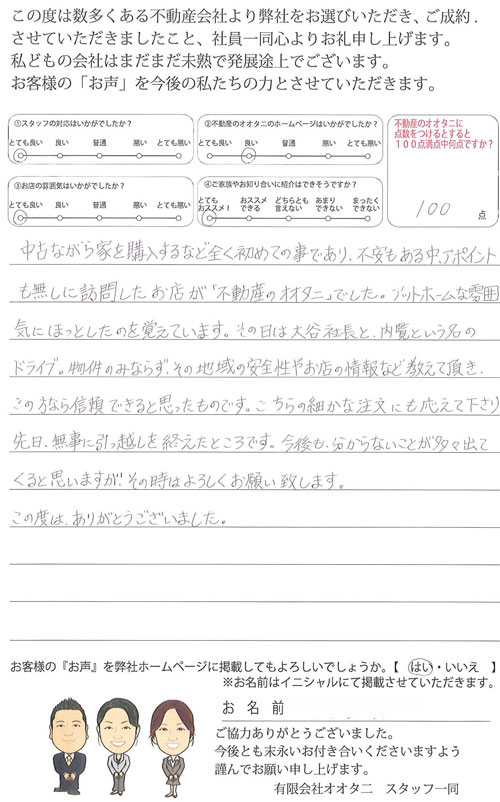 この度は数多くある不動産会社より弊社をお選びいただき、ご成約.
させていただきましたこと、社員一同心よりお礼申し上げます。
私どもの会社はまだまだ未熟で発展途上でございます。
お客様の「お声」を今後の私たちの力とさせていただきます。
①スタッフの対応はいかがでしたか？
とても良い 良い 普通 悪い とても悪い
②不動産のオオタニのホームページはいかがでしたか？
とても良い 良い 普通 悪い とても悪い
③お店の雰囲気はいかがでしたか？
とても良い 良い 普通 悪い とても悪い
④ご家族やお知り合いに紹介はできそうですか？
とても オススメ どちらとも あまり まったく
おススメ！ できる 言えない できない できない
不動産のオオタニに
点数をつけるとすると
１００点満点中何点ですか？
100 点
中古ながら家を購入するなど全く初めての事であり、不安もある中、アポイント
も無しに訪問したお店が「不動産のオオタニ」でした。アットホームな雰囲
気にほっとしたのを覚えています。その日は大谷社長と、内覧という名の
ドライブ。物件のみならず、その地域の安全性やお店の情報など教えて頂き、
この方なら信頼できると思ったものです。こちらの細かな注文にも応えて下さり
先日、無事に引っ越しを終えたところです。今後も、分からないことが多々出て
くると思いますが、その時はよろしくお願い致します。
この度は、ありがとうございました。
お客様の『お声』を弊社ホームページに掲載してもよろしいでしょうか。【 はい・いいえ 】
※お名前はイニシャルにて掲載させていただきます。
お 名 前
ご協力ありがとうございました。
今後とも末永いお付き合いくださいますよう
謹んでお願い申し上げます。
有限会社オオタニ スタッフ一同